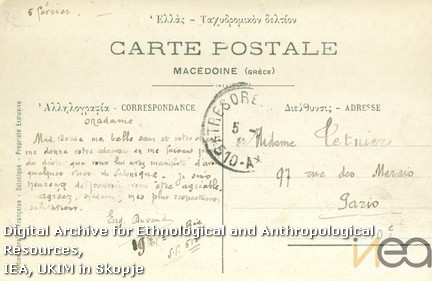 5 février
Ἑλλάς - Ταχυδρομικὸν δελτίον
CARTE POSTALE
MACÉDOINE (GRÈCE)
Ἀλληλογραφία - CORRESPONDANCE
Διεύθυνσις - ADRESSE
TRESOR
5
510
Madame
ma belle sœur et votre
me donna votre adresse en me faisant part
du désir que vous lui avez manifesté d'avoir
quelques vues de Salonique. Je suis
heureux de pouvoir vous être agréable.
Agréez, Madame, mes plus respectueuses
salutations.
Eug. Durand
S.P. 510
Madame
97 rue des Marais
Paris
Digital Archive for Ethnological and Anthropological
Resources,
IEA, UKIM in Skopje
iea